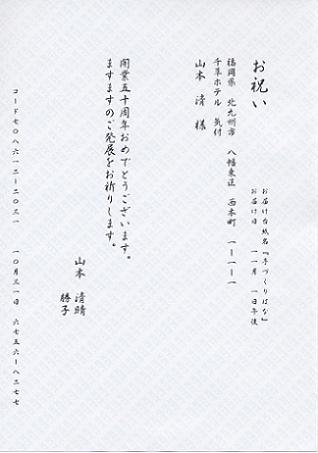 お祝い
お届け台紙名『手づくりはな』
お届け日　十一月　一日午後
福岡県　北九州市　八幡東区　西本町　一ー一ー一
千草ホテル　気付
山本　清　様
開業五十周年おめでとうございます。
ますますのご発展をお祈りします。
山本　清晴
勝子
コード七〇八六一二ー二〇三一　一〇月三一日　六七五六ー八二七七